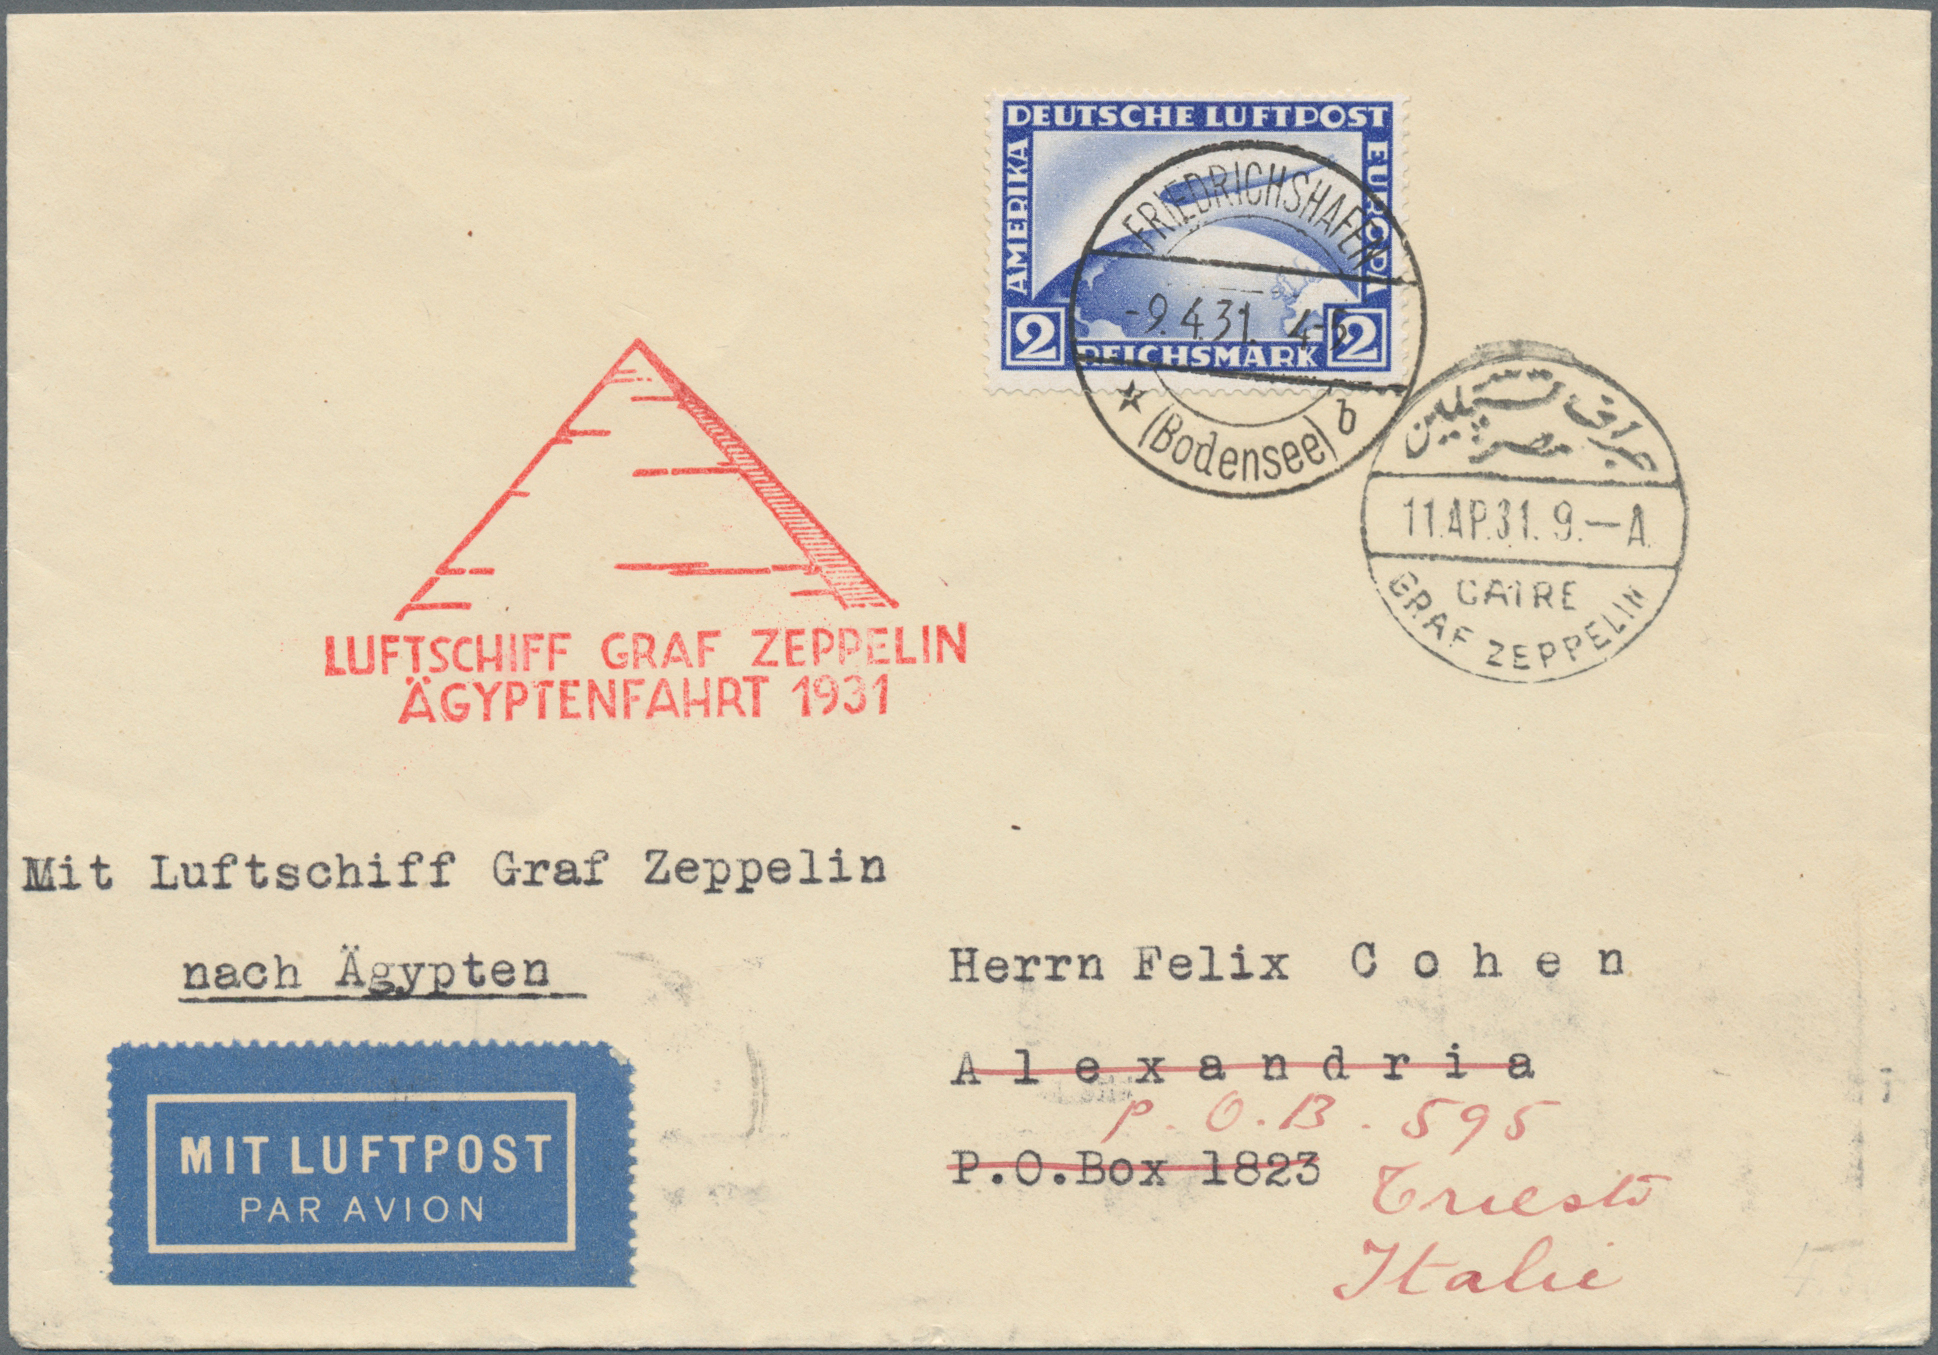 DEUTSCHE LUFTPOST
AMERIKA
EUROPA
2
2
REICHSMARK
FRIEDRICHSHAFEN
-9.4.31. 4-5
(Bodensee) b
جراف تسبلين
مصر
11.AP.31. 9.—A.
CAIRE
GRAF ZEPPELIN
LUFTSCHIFF GRAF ZEPPELIN
ÄGYPTENFAHRT 1931
Mit Luftschiff Graf Zeppelin
nach Ägypten
Herrn Felix Cohen
Alexandria
P.O.B. 595
P.O.Box 1823
Triest
Italie
MIT LUFTPOST
PAR AVION